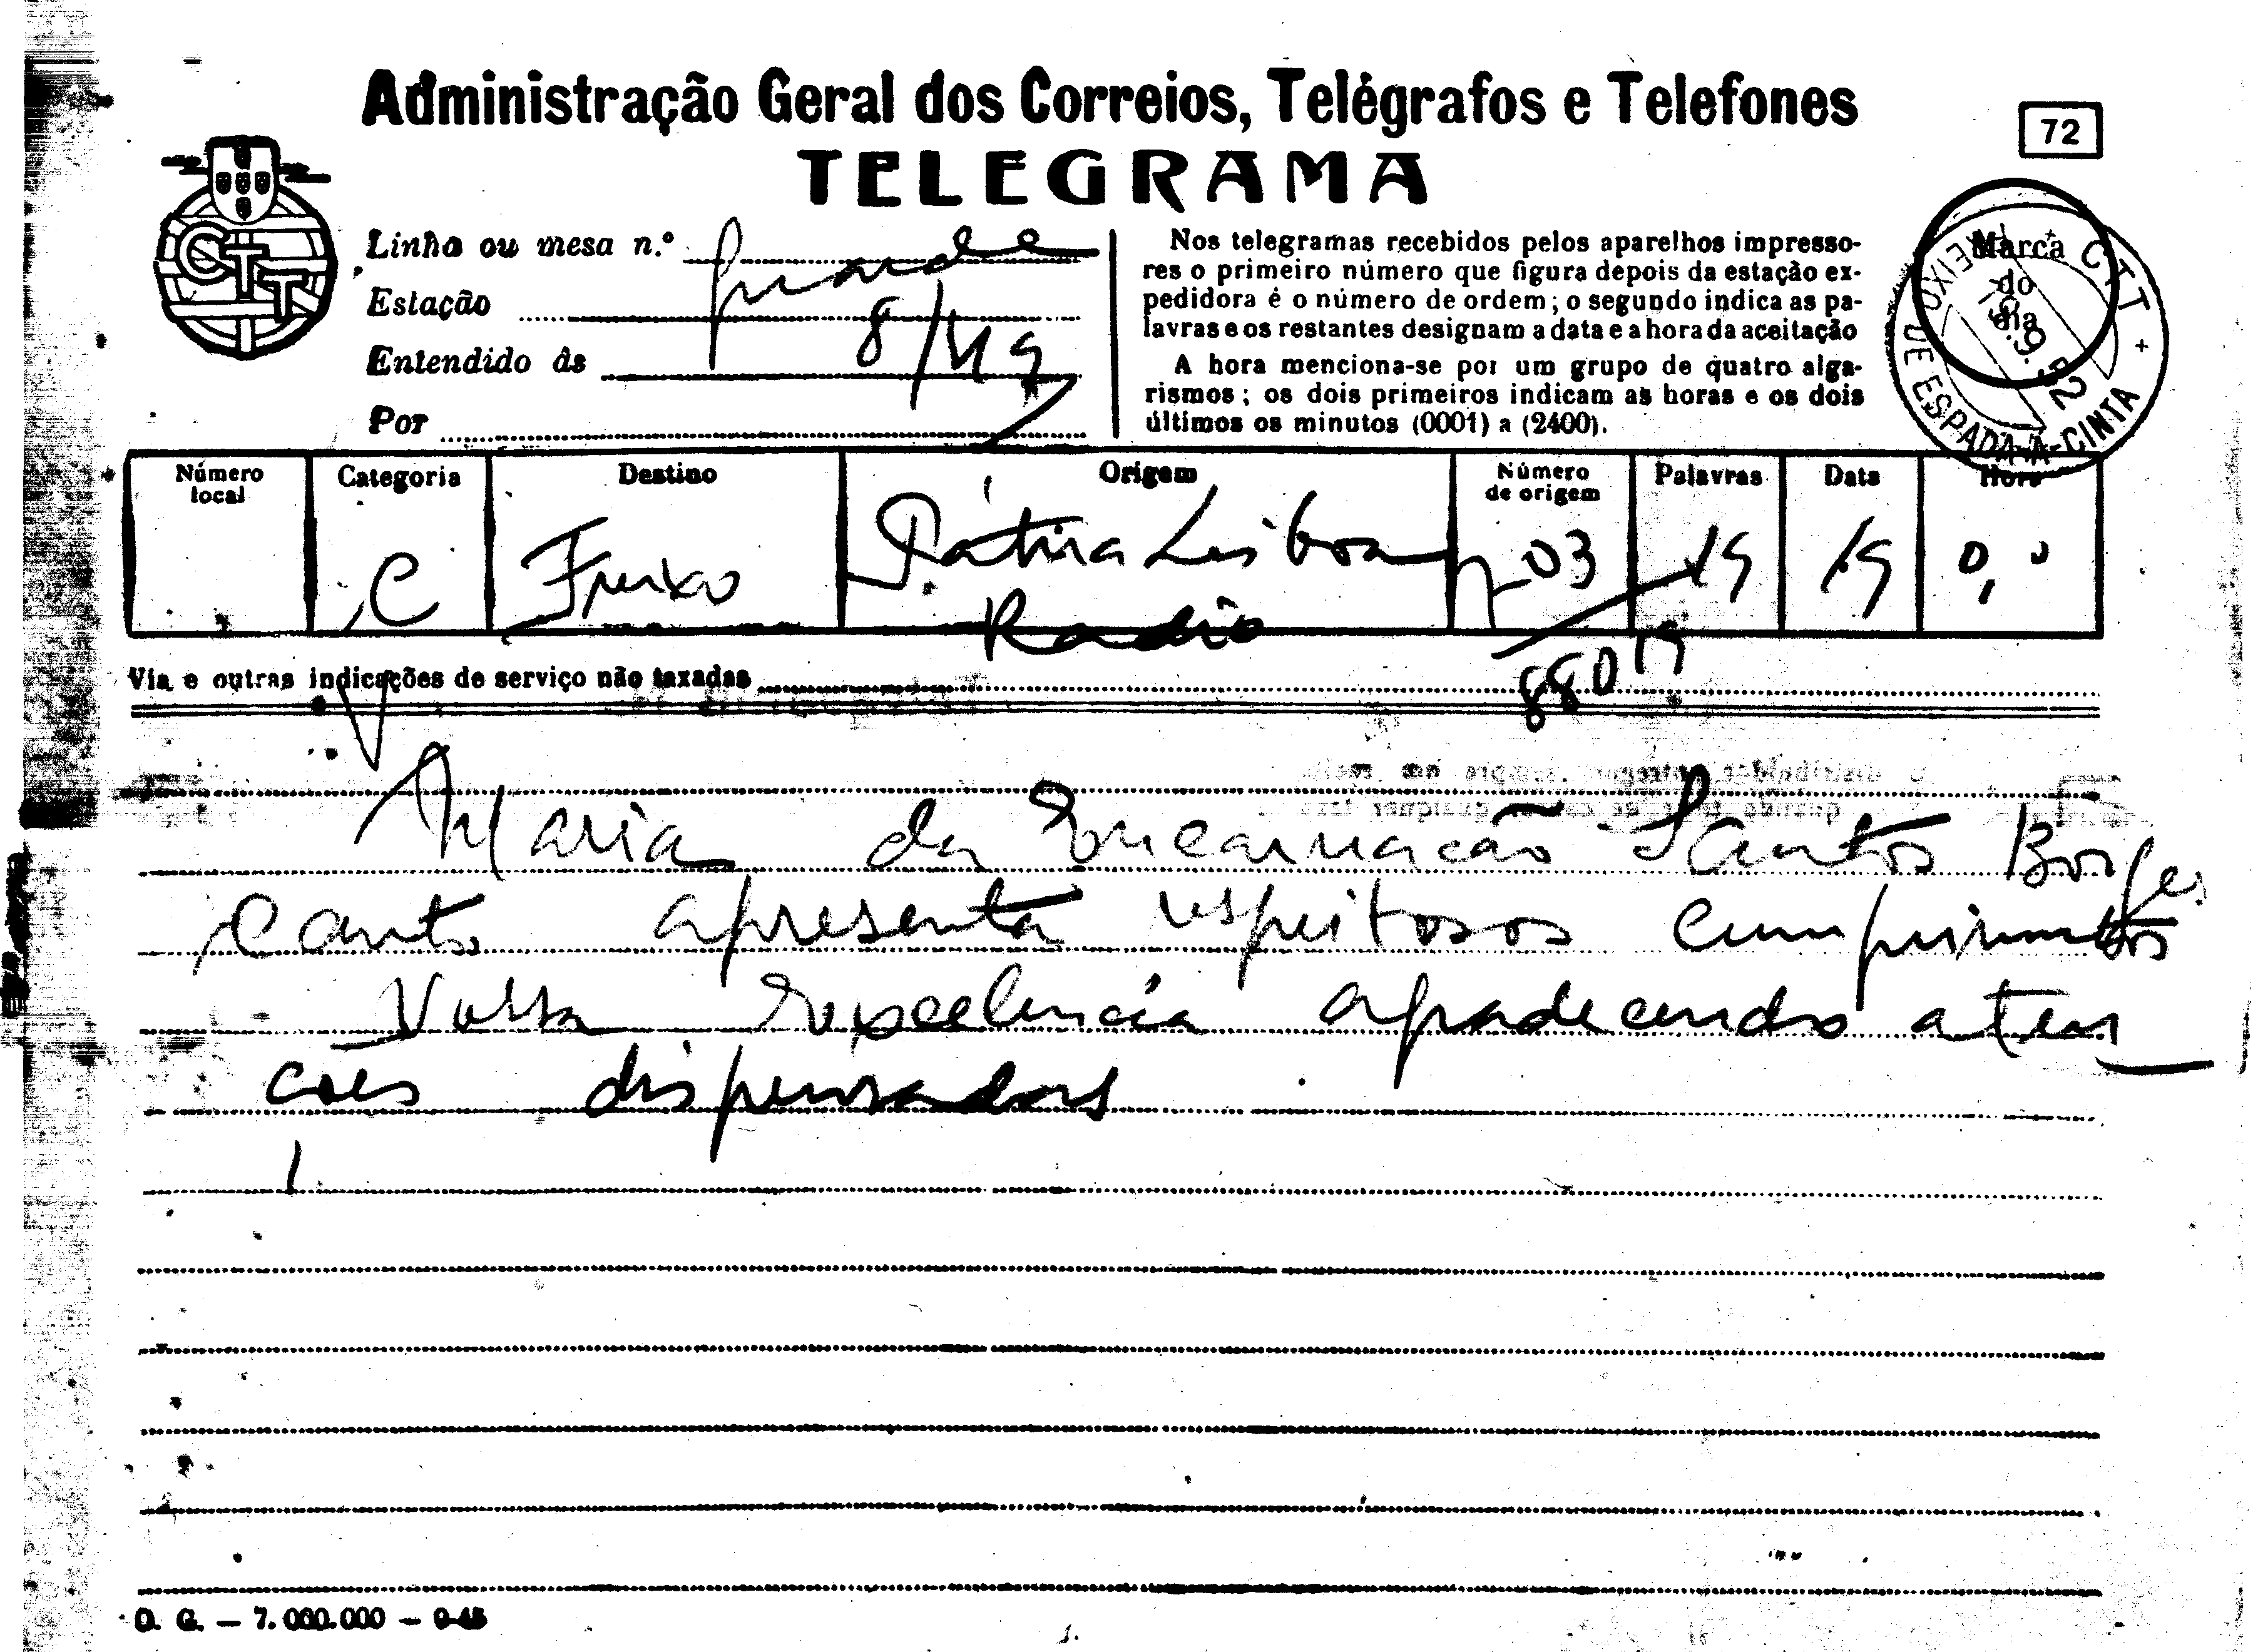 Administração Geral dos Correios, Telégrafos e Telefones
72
TELEGRAMA
CTT
Linha ou mesa n.º
Estação
Entendido às 8/49
Por
Nos telegramas recebidos pelos aparelhos impresso-
res o primeiro número que figura depois da estação ex-
pedidora é o número de ordem; o segundo indica as pa-
lavras e os restantes designam a data e a hora da aceitação
A hora menciona-se por um grupo de quatro alga-
rismos; os dois primeiros indicam as horas e os dois
últimos os minutos (0001) a (2400).
Marca do dia
CTT FREIXO DE ESPADA-À-CINTA
19.9.52
Número local Categoria Destino Origem Número de origem Palavras Data Hora
C Freixo Pátria Lisboa 03 19 19
Radio
88019
Via e outras indicações de serviço não taxadas
Maria da Encarnacão Santos Borges
Canto apresenta respeitosos cumprimentos
Vossa Exceelencia agradecendo aten
coes dispensadas
O. G. — 7.000.000 — 9-45